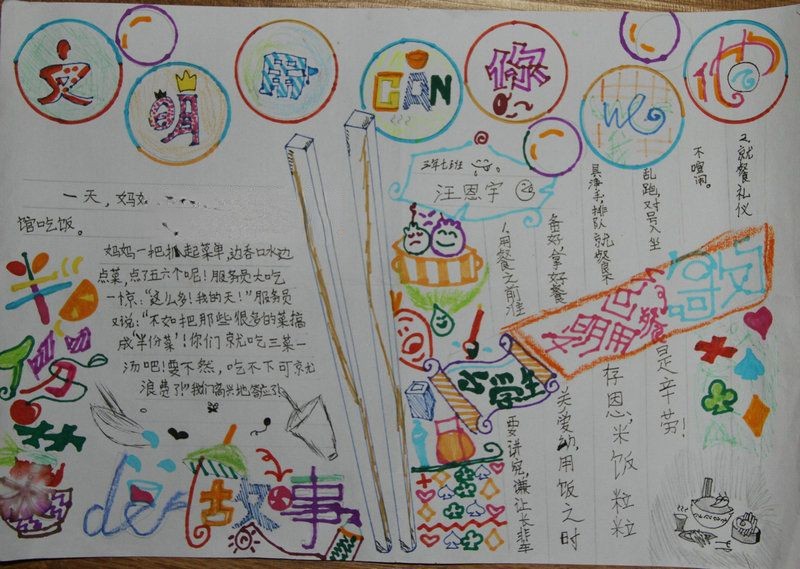 文明用CAN你我他
一天，妈妈
馆吃饭。
妈妈一把抓起菜单，边吞口水边
点菜，点了五六个呢！服务员大吃
一惊：“这么多！我的天！”服务员
又说：“不如把那些很多的菜搞
成‘半份菜’！你们就吃三菜一
汤吧！要不然，吃不下可就
浪费了！”我们高兴地答应了。
半份菜
de
古故事
三年七班
汪恩宇
1.用餐之前准
备好，拿好餐
具薄手，排队就餐
乱跑，对号入坐
不喧闹。
2.就餐礼仪
文明用餐
要讲究，谦让长辈
关爱幼，用饭之时
存恩，米饭粒粒
是辛劳！